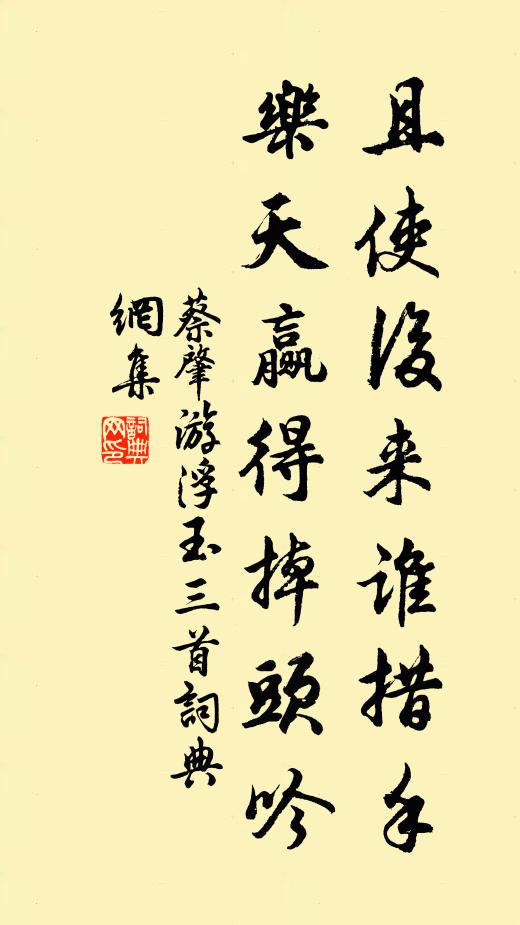 且使後来誰措手
樂天贏得掉頭吟
蔡肇游浮玉三首詞典
網集
詞典網印